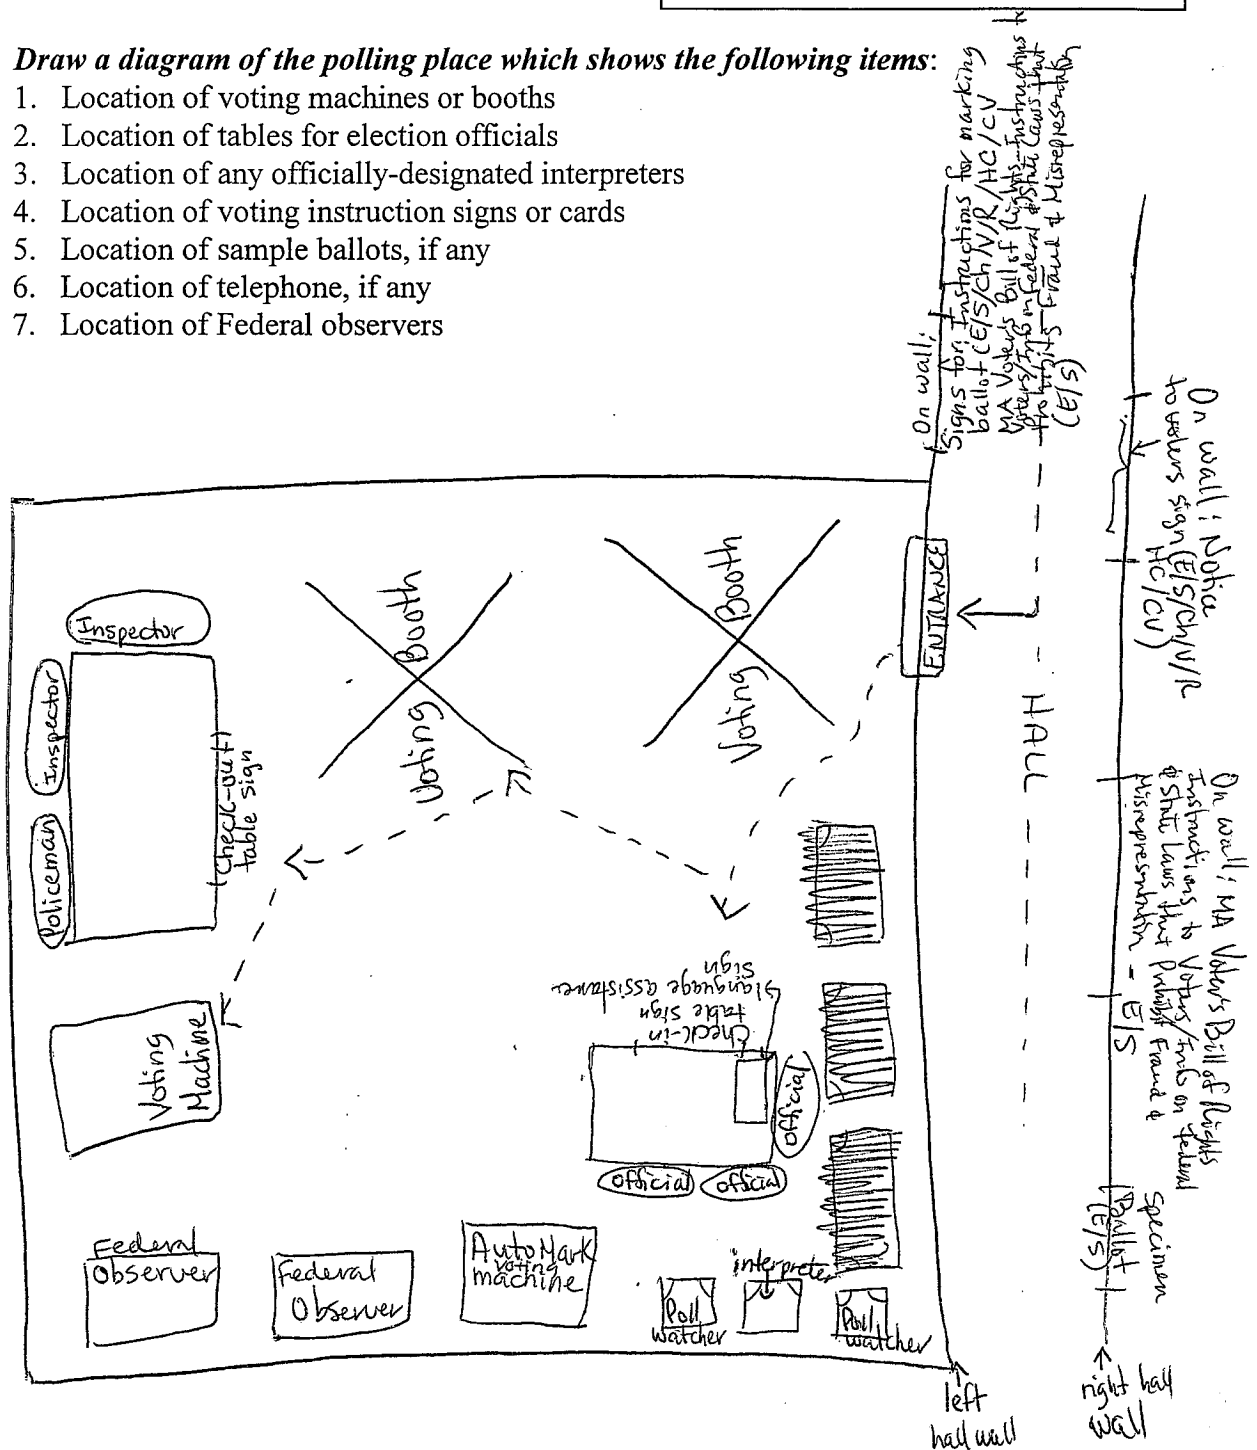 Draw a diagram of the polling place which shows the following items:
1. Location of voting machines or booths
2. Location of tables for election officials
3. Location of any officially-designated interpreters
4. Location of voting instruction signs or cards
5. Location of sample ballots, if any
6. Location of telephone, if any
7. Location of Federal observers
On wall:
Signs for: Instructions for marking
ballot (E/S/Ch/V/R/HC/CV
MA Voter's Bill of Rights Instructions to
Voters/Info on Federal & State Laws that
Prohibits Fraud & Misrepresentation
(E/S)
On wall: Notice
to voters sign (E/S/Ch/V/R
HC/CV)
On wall: MA Voter's Bill of Rights
Instructions to Voters/Info on Federal
& State Laws that Prohibit Fraud &
Misrepresentation - E/S
Specimen
Ballot
(E/S)
right hall
wall
left
hall wall
HALL
ENTRANCE
Voting Booth
Voting Booth
Inspector
Inspector
Policeman
(Check-out)
table sign
Voting
Machine
Check-in
table sign
language assistance
sign
official
official
official
Federal
Observer
Federal
Observer
AutoMark
voting
machine
Poll
watcher
interpreter
Poll
watcher